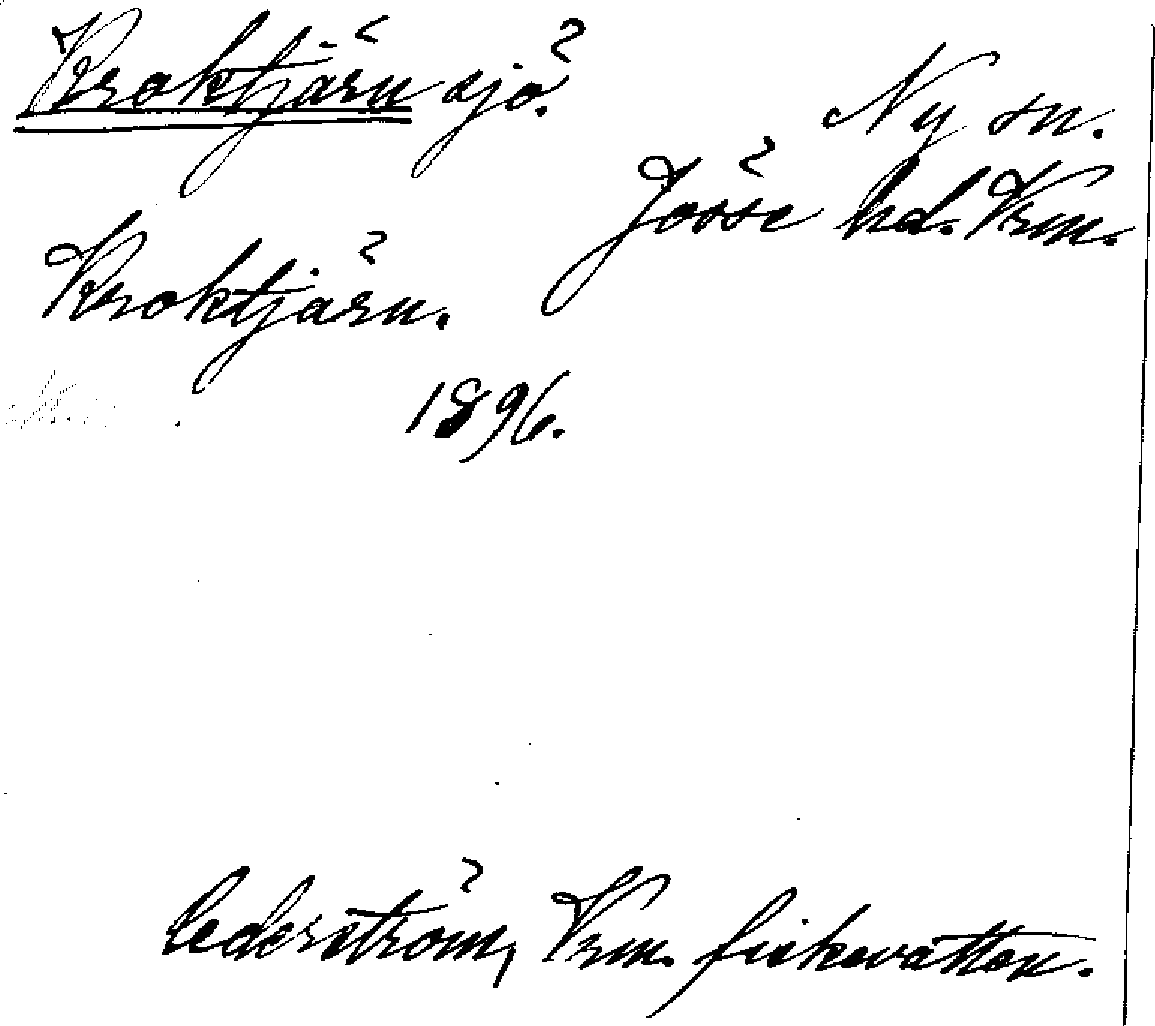 Kroktjärn sjö.
Ny sn.
Jösse hd. Vrm.
Kroktjärn.
1896.
Cederström, Vrm. fiskevatten.